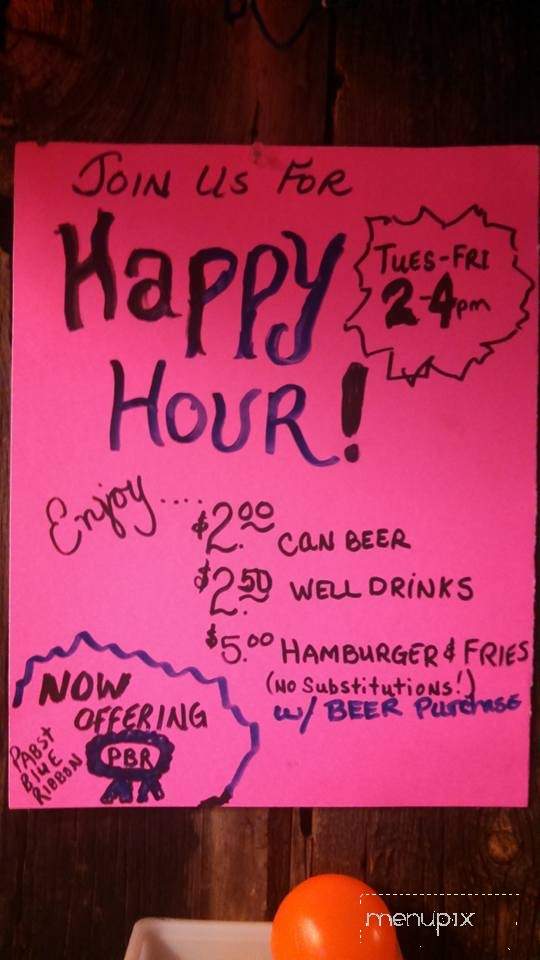 JOIN US FOR
Happy
HOUR!
TUES-FRI
2-4pm
Enjoy....
$2.00 CAN BEER
$2.50 WELL DRINKS
$5.00 HAMBURGER & FRIES
(NO Substitutions!)
w/ BEER Purchase
NOW
OFFERING
PABST
BLUE
RIBBON
PBR
menupix